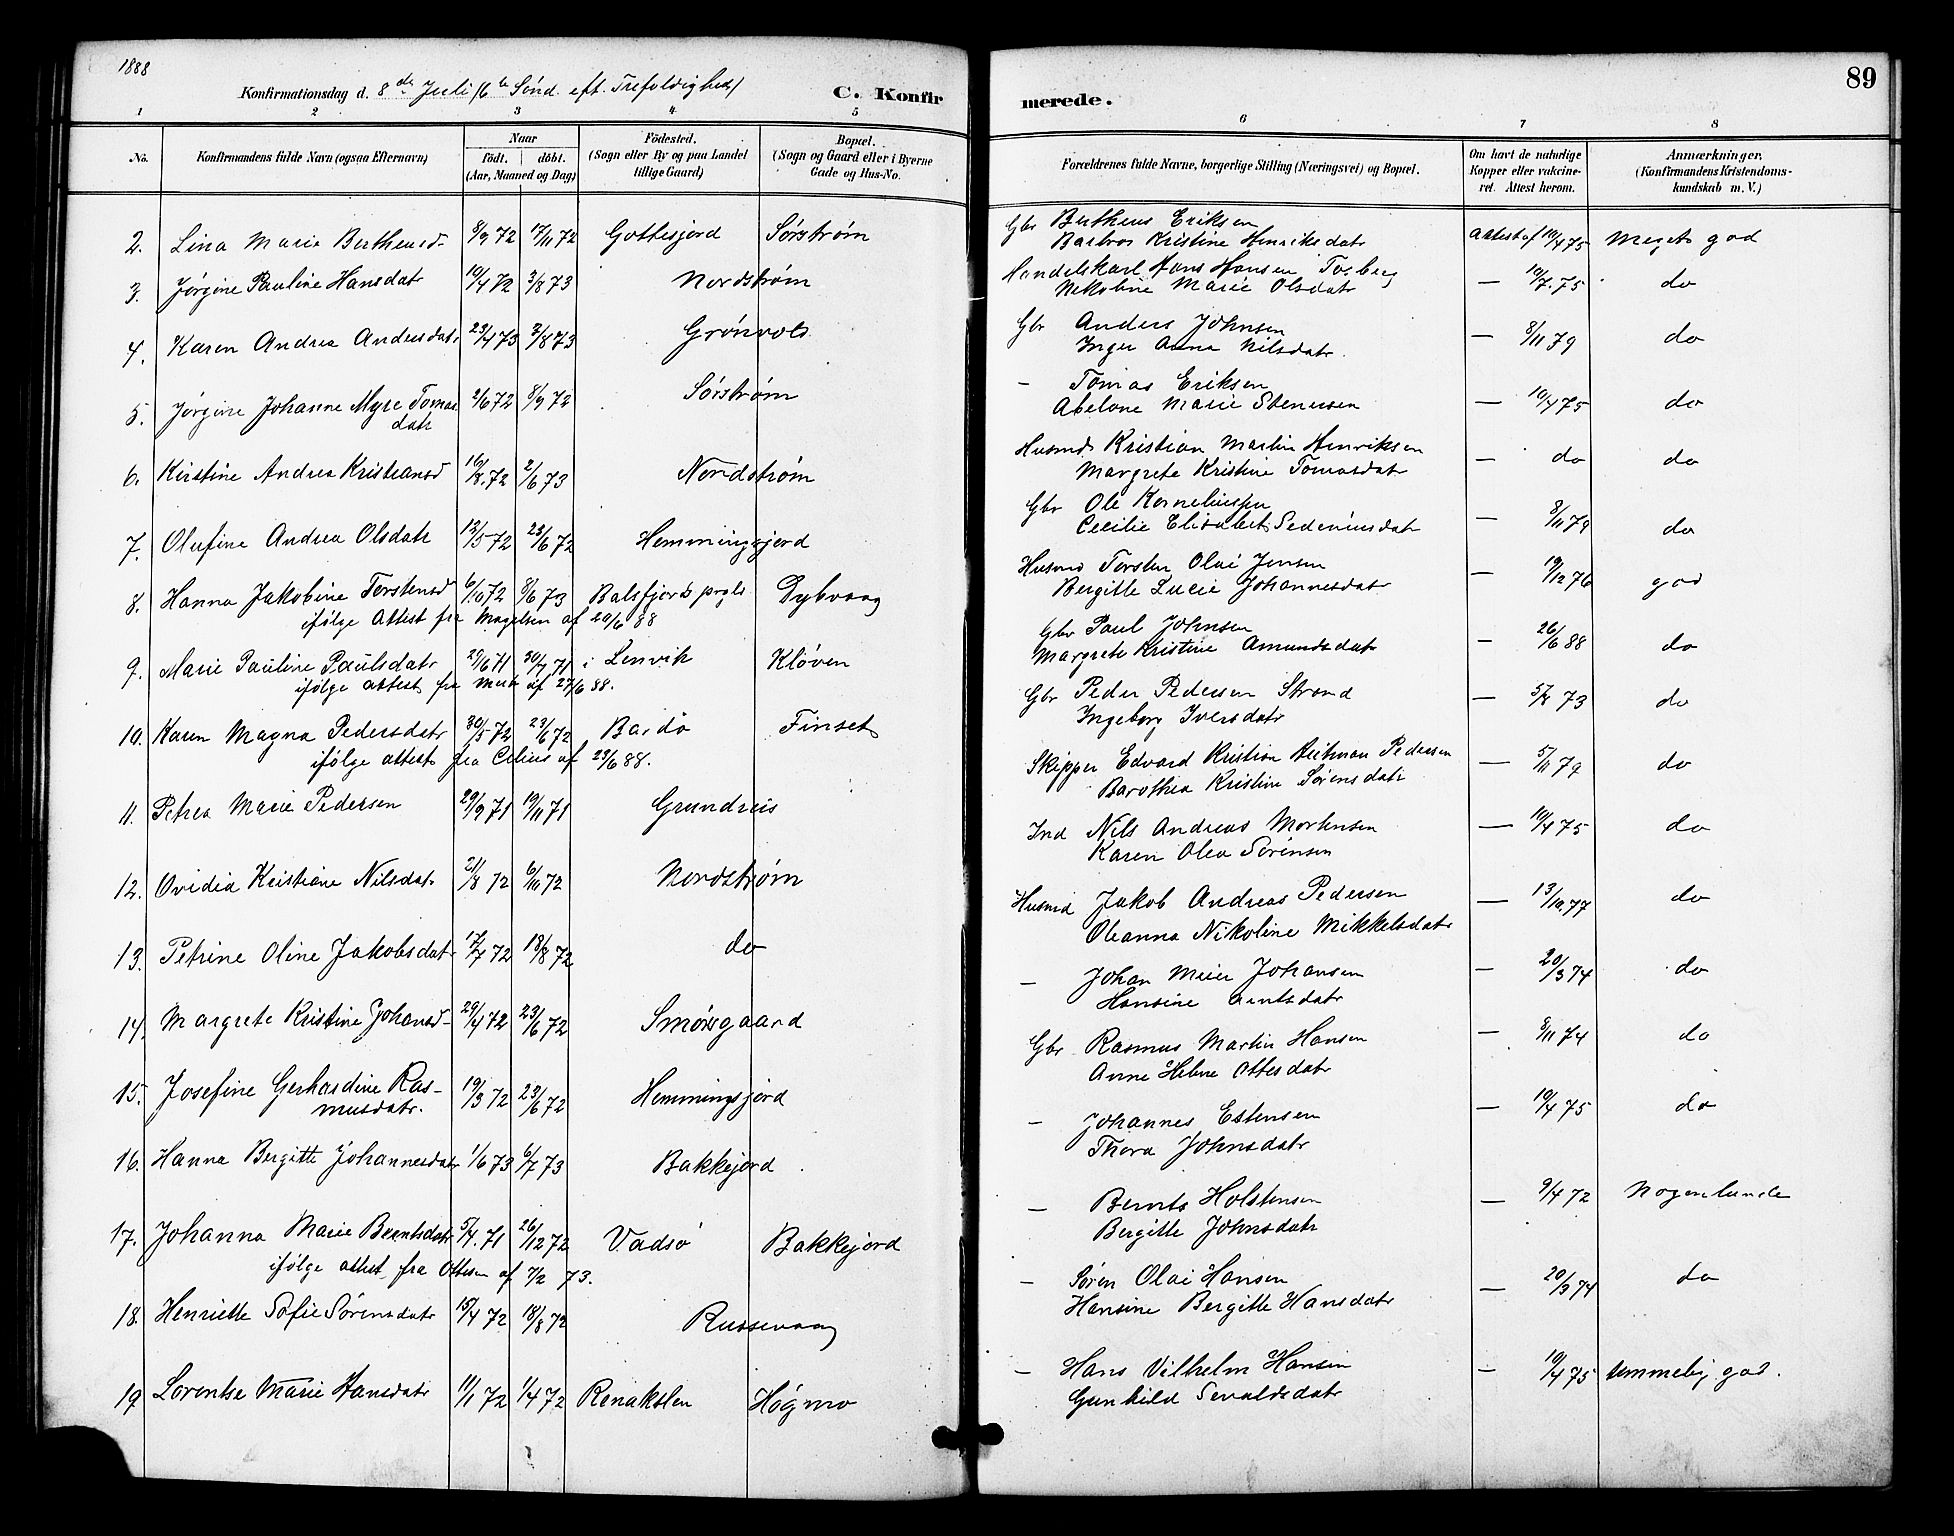 1888
89
Konfirmationsdag d. 8de Juli (6te Sönd. eft. Trefoldighed)
C. Konfirmerede.
1 2 3 4 5 6 7 8
No.
Konfirmandens fulde Navn (ogsaa Efternavn)
Naar
födt. | döbt.
(Aar, Maaned og Dag)
Födested.
(Sogn eller By og paa Landet
tillige Gaard)
Bopæl.
(Sogn og Gaard eller i Byerne
Gade og Hus-No.
Forældrenes fulde Navne, borgerlige Stilling (Næringsvei) og Bopæl.
Om havt de naturlige
Kopper eller vakcine-
ret. Attest herom.
Anmærkninger.
(Konfirmandens Kristendoms-
kundskab m. V.)
2. Lina Marie Berthensd. 8/9 72 17/11 72 Gottesjord Sørstrøm
Gbr Bertheus Eriksen Attest af 10/4 75 Meget god
Barbros Kristine Henriksdatr
3. Jørgine Pauline Hansdatr 10/4 72 3/8 73 Nordstrøm
Handelskarl Hans Hansen — 10/7 75 do
Nikoline Marie Olsdatr
4. Karen Andrea Andersdatr 23/4 73 3/8 73 Grönvold
Gbr Anders Johnsen — 8/11 79 do
Inger Anna Nilsdatr.
5. Jørgine Johanne Myre Tomas 2/6 72 8/9 72 Sørstrøm
datr
— Tomas Eriksen — 10/4 75 do
Abelone Marie Stenersen
6. Kristine Andrea Kristiansd 16/8 72 2/6 73 Nordstrøm
Husmd Kristian Martin Henriksen — do do
Margrete Kristine Tomasdatr
7. Olufine Andrea Olsdatr 12/5 72 23/6 72 Hemmingsjord
Gbr Ole Korneliussen — 8/11 79 do
Cecilie Elisabet Sedeniusdatr
8. Hanna Jakobine Torstensd 6/10 72 8/6 73 Balsfjords prgld Dybvaag
ifölge Attest fra Magelsen af 20/6 88
Husmd Torsten Olai Jensen — 19/12 76 god
Bergitte Lucie Johannesdatr
9. Marie Pauline Paulsdatr 29/6 71 30/7 71 i Lenvik Kløven
ifölge attest fra af 27/6 88.
Gbr Paul Johnsen — 26/6 88 do
Margrete Kristine Amundsdatr
10. Karen Magna Pedersdatr 30/5 72 23/6 72 Bardo Finset
ifölge attest fra Cilius af 29/6 88.
Gbr Peder Pedersen Strand — 5/8 73 do
Ingeborg Iversdatr
11. Petrea Marie Pedersen 29/9 71 19/11 71 Grundreis
Skipper Edvard Kristian Pedersen — 5/11 79 do
Barothea Kristine Sörensdatr
12. Ovidia Kristiane Nilsdatr 21/8 72 6/10 72 Nordstrøm
Ind Nils Andreas Mortensen — 10/4 75 do
Karen Olea Sörensen
13. Petrine Oline Jakobsdatr 17/7 72 18/8 72 do
Husmd Jakob Andreas Pedersen — 13/10 77 do
Oleanna Nikoline Mikkelsdatr
14. Margrete Kristine Johansd 29/4 72 23/6 72 Smörsgaard
— Johan Meier Johansen — 20/3 74 do
Hansine Arntsdatr
15. Josefine Gerhardine Ras- 19/3 72 23/6 72 Hemmingsjord
musdatr.
Gbr Rasmus Martin Hansen — 8/11 74 do
Anne Helene Ottesdatr
16. Hanna Bergitte Johannesdatr 1/6 73 6/7 73 Bakkejord
— Johannes Estensen — 10/4 75 do
Thora Johnsdatr
17. Johanna Marie Berntsdatr 5/4 71 26/12 72 Vadsö Bakkejord
ifölge attest fra Ottesen af 7/2 73.
— Bernts Holstensen — 9/4 72 Nogenlunde
Bergitte Johnsdatr
18. Henriette Sofie Sörensdatr 15/4 72 18/8 72 Russevaag
— Sören Olai Hansen — 20/3 74 do
Hansine Bergitte Hansdatr
19 Lorentse Marie Hansdatr 11/1 72 1/4 72 Renakslen Högmo
— Hans Vilhelm Hansen — 10/4 75 temmelig god.
Gunhild Sevaldsdatr